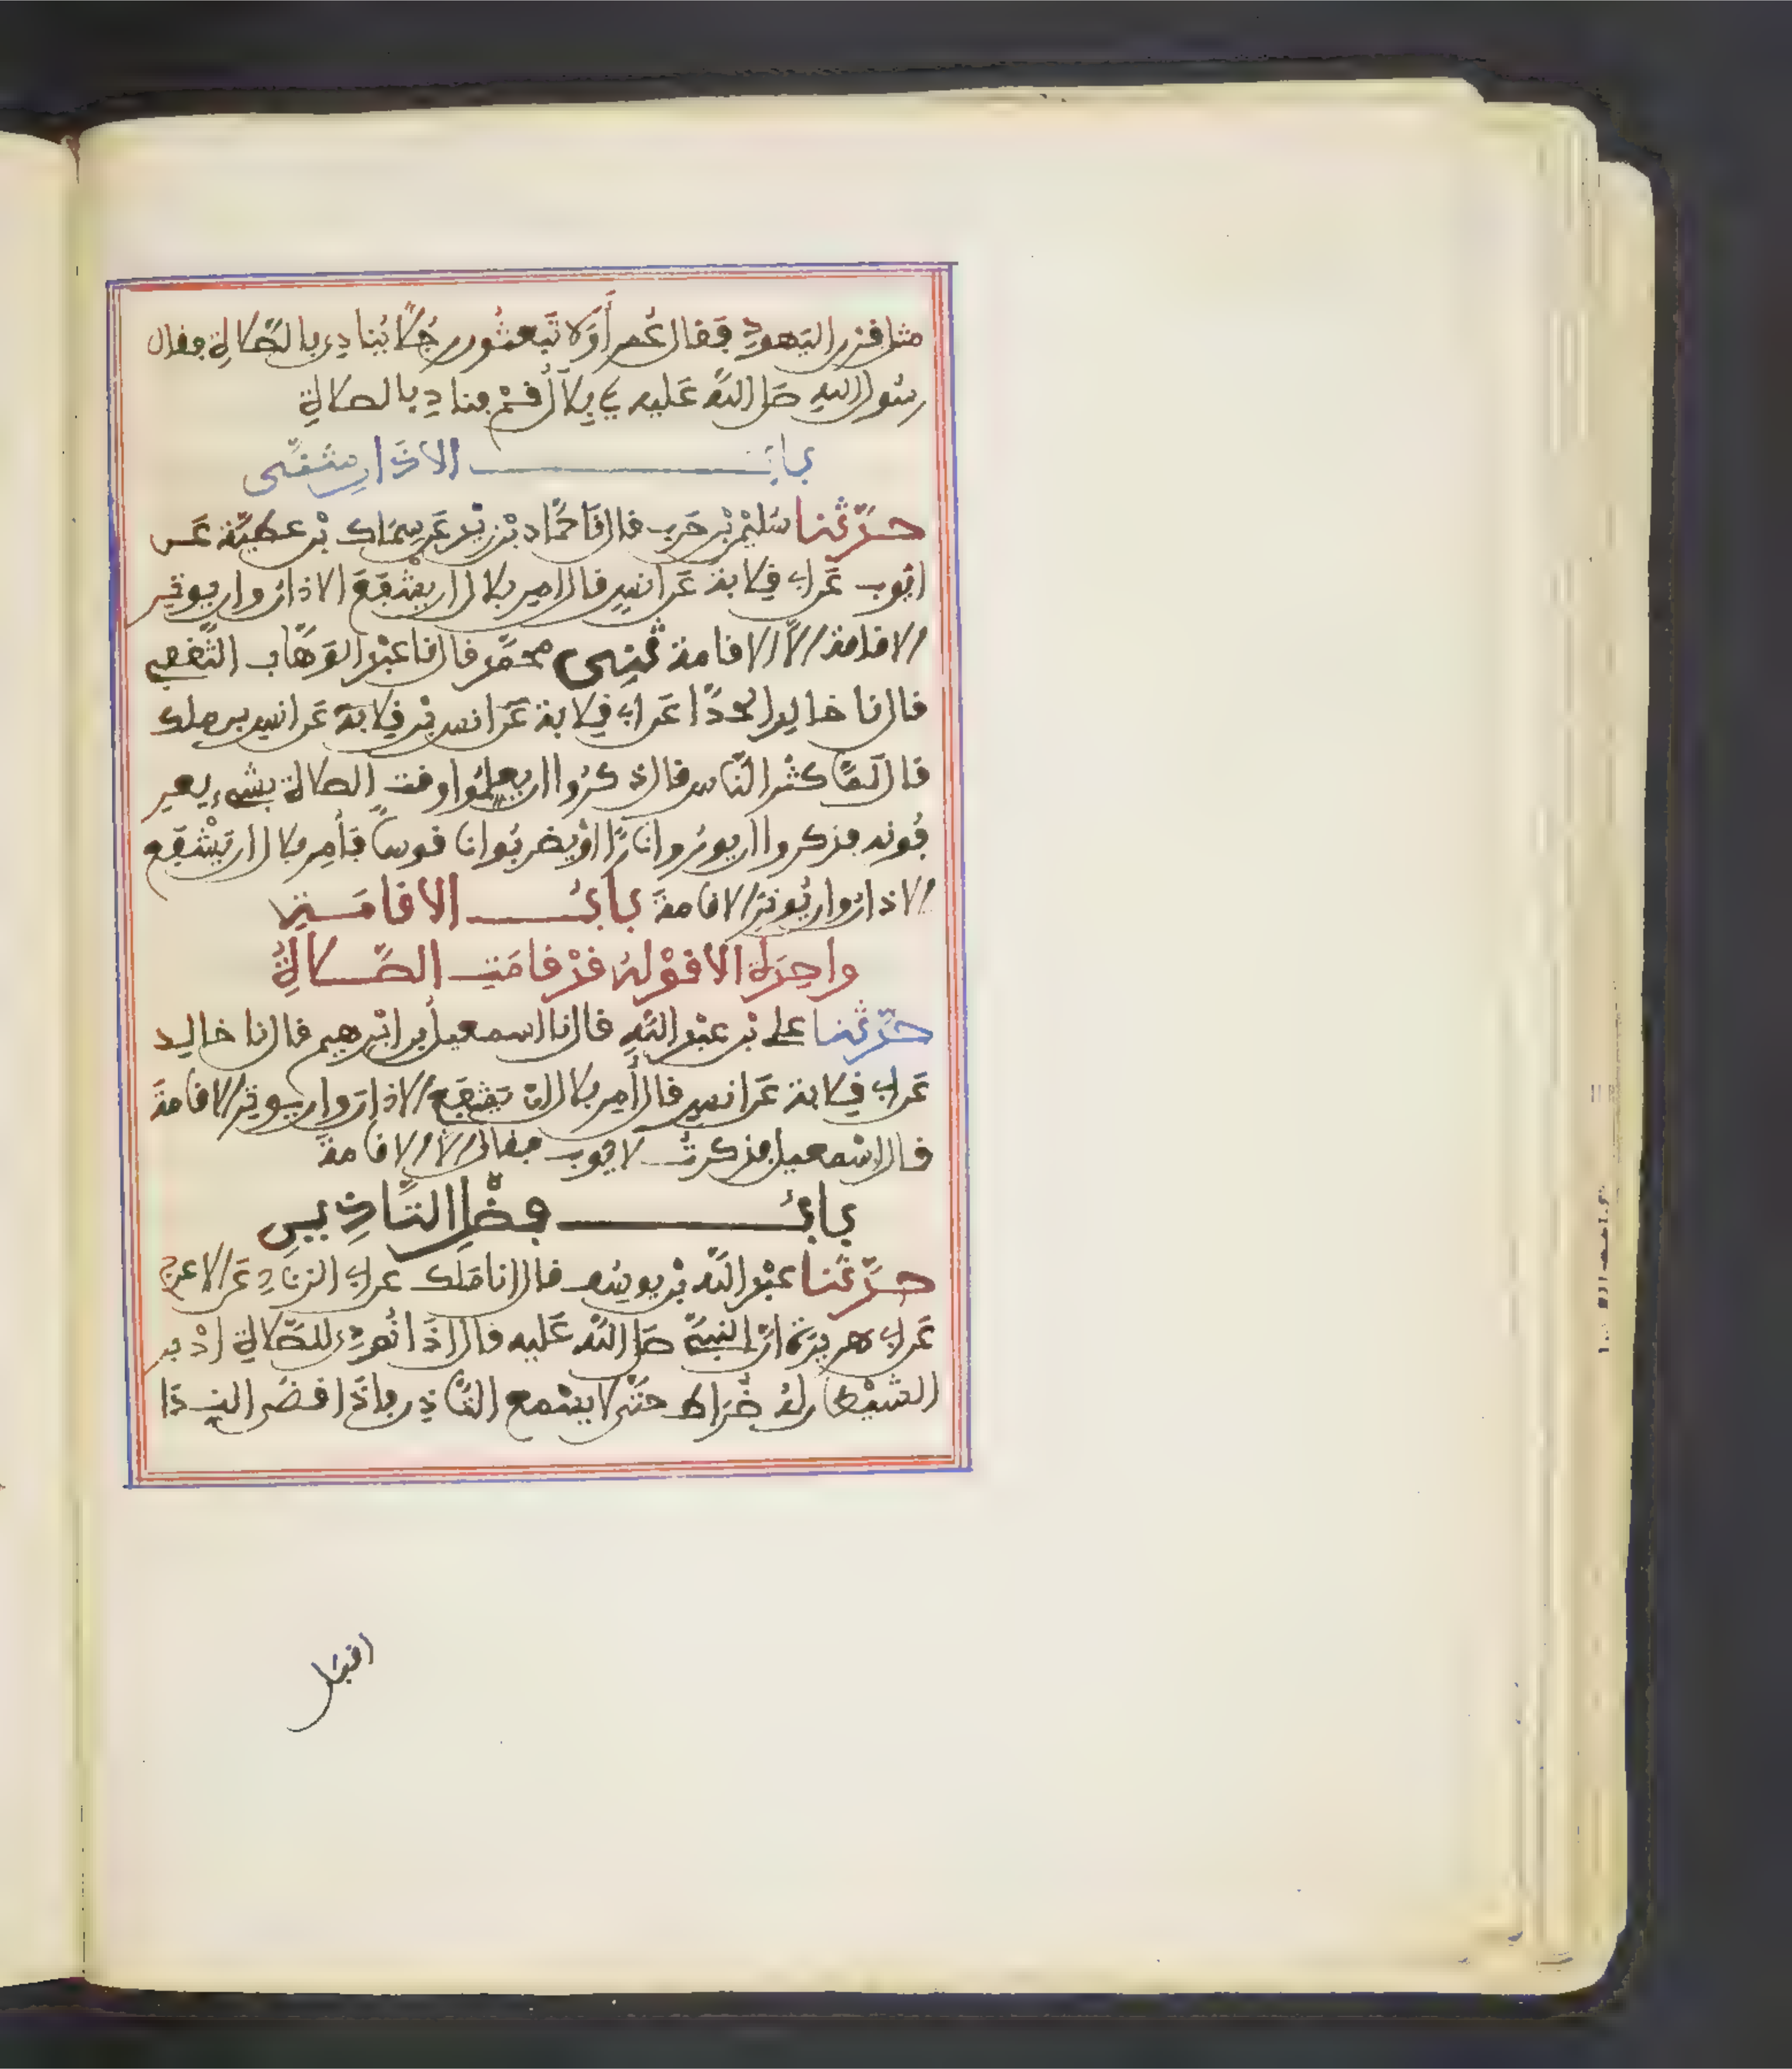 مثل قرن اليهود فقال عمر أولا تبعثون رجلا ينادي بالصلاة فقال
رسول الله صلى الله عليه يا بلال قم فناد بالصلاة
باب الاذان مثنى
حدثنا سليمن بن حرب قال نا حماد بن زيد عن سماك بن عطية عن
ايوب عن ابي قلابة عن انس قال امر بلال ان يشفع الاذان وان يوتر
الاقامة الا الاقامة ثني محمد قال نا عبد الوهاب الثقفي
قال نا خالد الحذا عن ابي قلابة عن انس بن قلابة عن انس بن ملك
قال لما كثر الناس قال ذكروا ان يعلموا وقت الصلاة بشيء يعر
فونه فذكروا ان يوروا نارا او يضربوا ناقوسا فأمر بلال ان يشفع
الاذان وان يوتر الاقامة باب الاقامة
واحدة الا قوله قد قامت الصلاة
حدثنا علي بن عبد الله قال نا اسمعيل بن ابرهيم قال نا خالد
عن ابي قلابة عن انس قال أمر بلال ان يشفع الاذان وان يوتر الاقامة
قال اسمعيل فذكرت لايوب فقال الا الاقامة
باب فضل التاذين
حدثنا عبد الله بن يوسف قال انا ملك عن ابي الزناد عن الاعرج
عن ابي هريرة ان النبي صلى الله عليه قال اذا نودي للصلاة ادبر
الشيطان له ضراط حتى لا يسمع التاذين فاذا قضى الندا
اقبل